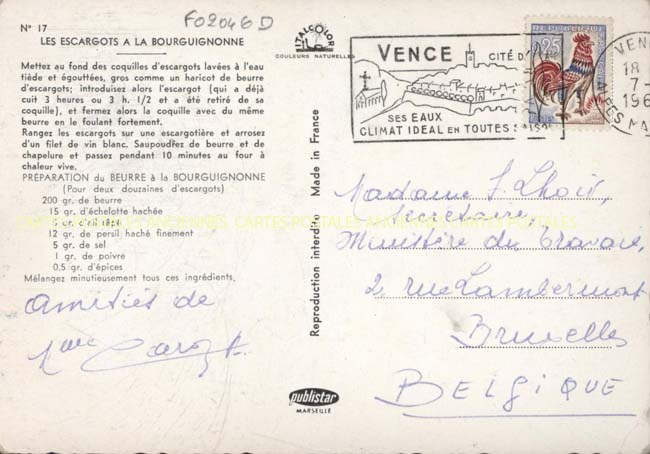 F02046D
N° 17
LES ESCARGOTS A LA BOURGUIGNONNE
Mettez au fond des coquilles d'escargots lavées à l'eau
tiède et égouttées, gros comme un haricot de beurre
d'escargots; introduisez alors l'escargot (qui a déjà
cuit 3 heures ou 3 h. 1/2 et a été retiré de sa
coquille), et fermez alors la coquille avec du même
beurre en le foulant fortement.
Rangez les escargots sur une escargotière et arrosez
d'un filet de vin blanc. Saupoudrez de beurre et de
chapelure et passez pendant 10 minutes au four à
chaleur vive.
PRÉPARATION du BEURRE à la BOURGUIGNONNE
(Pour deux douzaines d'escargots)
200 gr. de beurre
15 gr. d'échelotte hachée
gr. d'ail râpé
12 gr. de persil haché finement
5 gr. de sel
1 gr. de poivre
0,5 gr. d'épices
Mélangez minutieusement tous ces ingrédients.
amitiés de
ITALCOLOR
COULEURS NATURELLES
Reproduction interdite Made in France
publistar
MARSEILLE
VENCE
CITÉ D'
SES EAUX
CLIMAT IDEAL EN TOUTES SAISONS
0,25
REPUBLIQUE
VENCE
18
7-
196
Madame J. Lhoir,
Secretaire,
Ministère du Travail,
2 rue Lambermont
Bruxelles
BELGIQUE
CARTES POSTALES ANCIENNES CARTES POSTALES ANCIENNES CARTES POSTALES